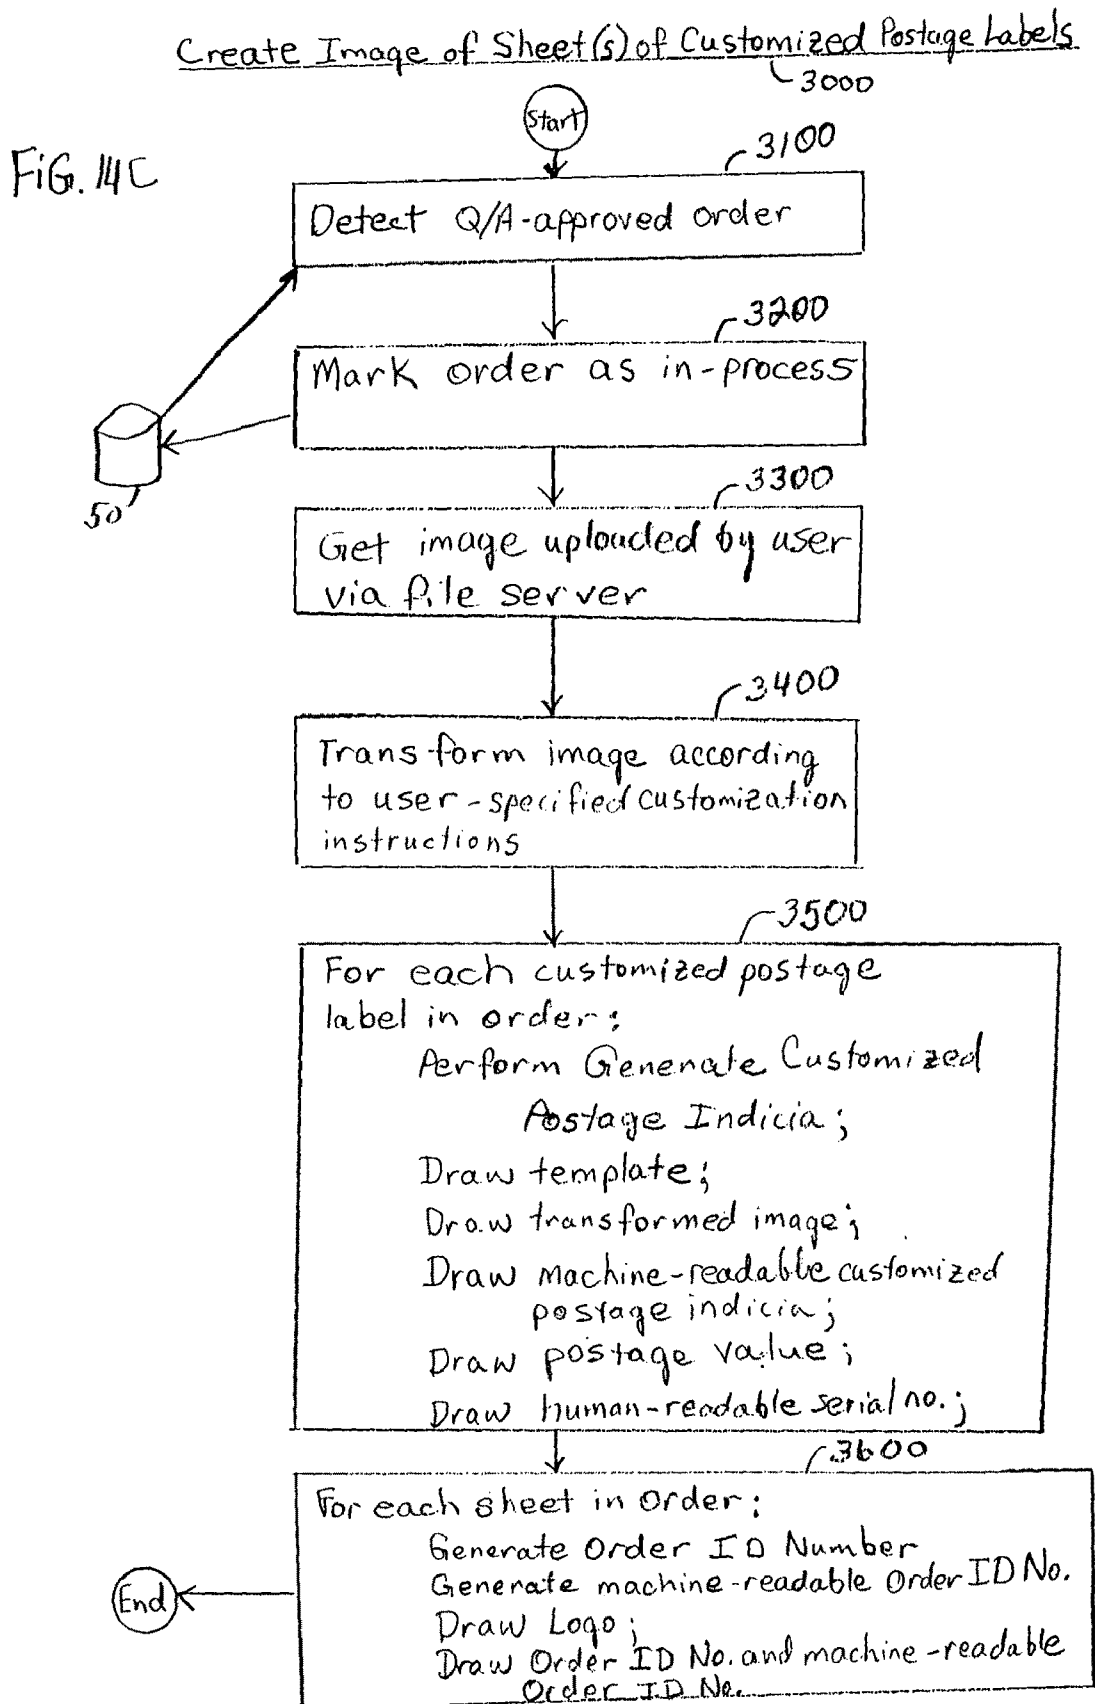 Create Image of Sheet(s) of Customized Postage Labels
3000
Start
FiG. 14C
3100
Detect Q/A-approved order
3200
Mark order as in-process
50
3300
Get image uploaded by user
via file server
3400
Transform image according
to user-specified customization
instructions
3500
For each customized postage
label in order:
Perform Generate Customized
Postage Indicia;
Draw template;
Draw transformed image;
Draw machine-readable customized
postage indicia;
Draw postage value;
Draw human-readable serial no.;
3600
For each sheet in order:
Generate Order ID Number
Generate machine-readable Order ID No.
Draw Logo;
Draw Order ID No. and machine-readable
Order ID No.
End